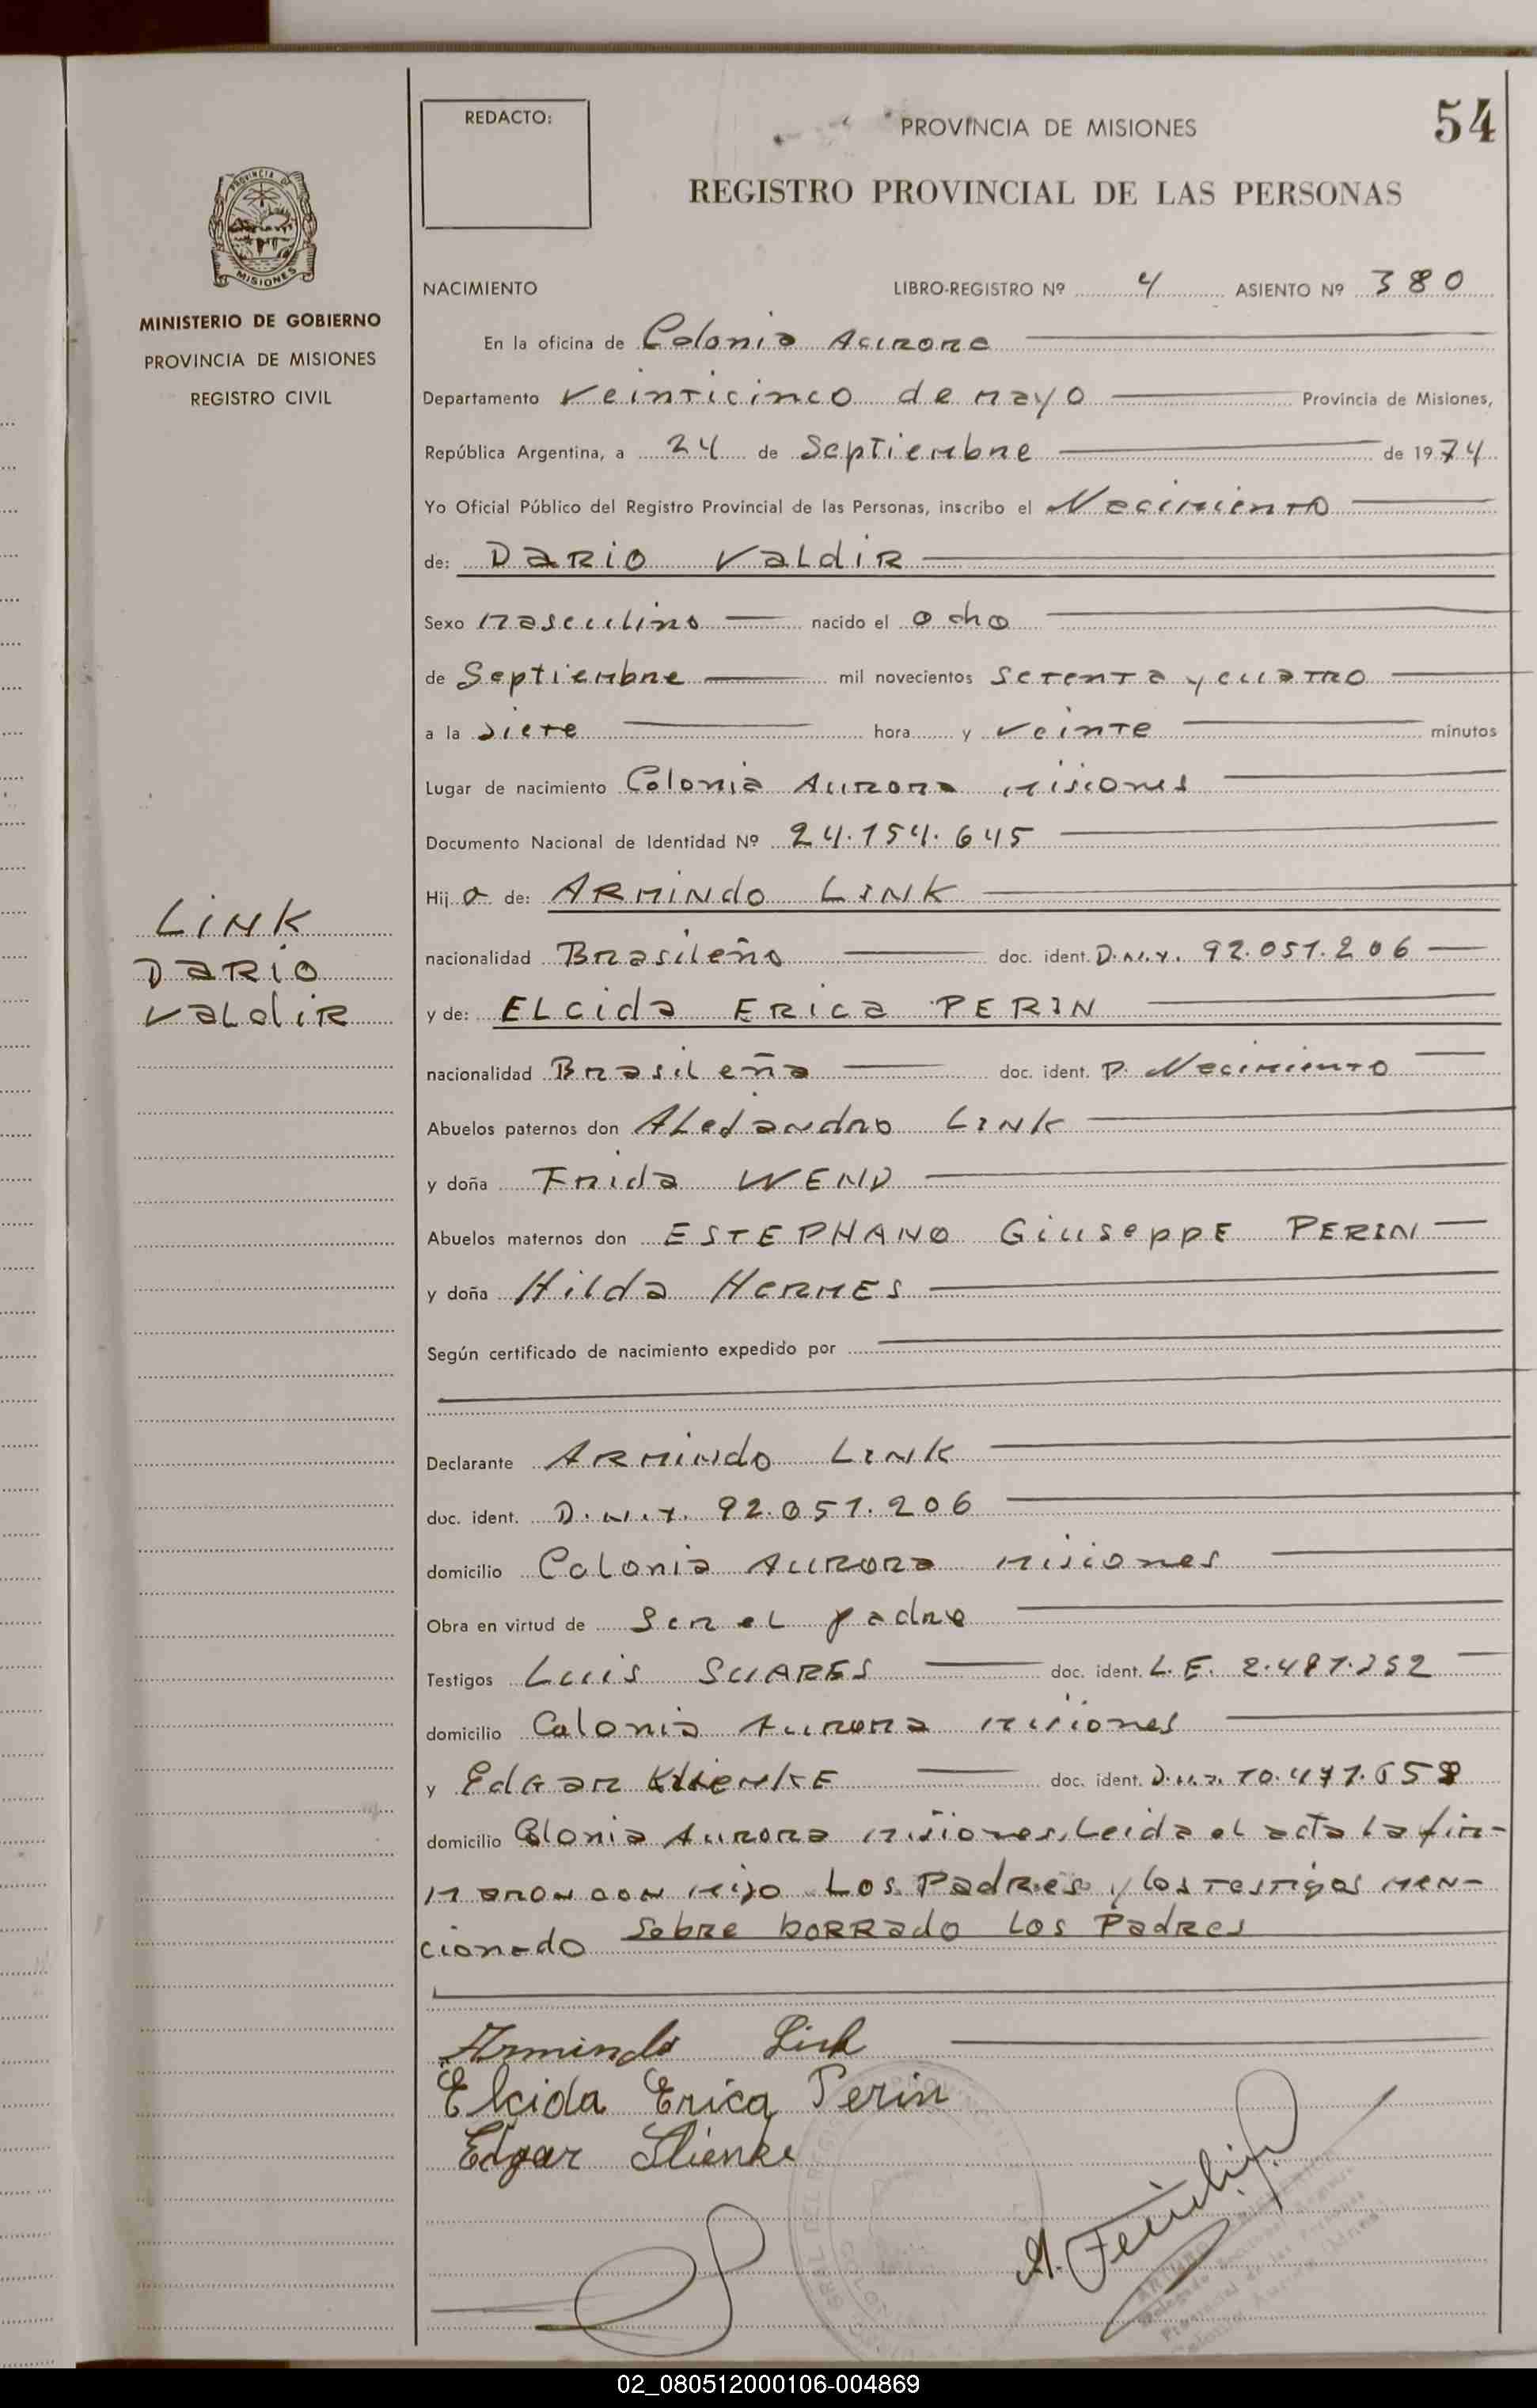 REDACTO:
PROVINCIA DE MISIONES
54
REGISTRO PROVINCIAL DE LAS PERSONAS
PROVINCIA DE
MISIONES
MINISTERIO DE GOBIERNO
PROVINCIA DE MISIONES
REGISTRO CIVIL
NACIMIENTO LIBRO-REGISTRO Nº 4 ASIENTO Nº 380
En la oficina de Colonia Aurora
Departamento Veinticinco de mayo Provincia de Misiones,
República Argentina, a 24 de Septiembre de 1974
Yo Oficial Público del Registro Provincial de las Personas, inscribo el Nacimiento
de: DARIO VALdiR
Sexo Masculino nacido el ocho
de Septiembre mil novecientos setenta y cuatro
a la siete hora y veinte minutos
Lugar de nacimiento Colonia Aurora Misiones
Documento Nacional de Identidad Nº 24.154.645
Hijo de: ARMINdo LINK
LINK
DARIO
VALdiR
nacionalidad Brasileño doc. ident. D.N.I. 92.051.206
y de: ELcida ERica PERIN
nacionalidad Brasileña doc. ident. P. Nacimiento
Abuelos paternos don ALejandro LINK
y doña Frida WEND
Abuelos maternos don ESTEPHANO GiusEppE PERIN
y doña Hilda HERMES
Según certificado de nacimiento expedido por
Declarante ARMINdo LINK
doc. ident. D.N.I. 92.051.206
domicilio Colonia Aurora Misiones
Obra en virtud de ser el padre
Testigos Luis SUARES doc. ident. L.E.
domicilio Colonia Aurora Misiones
y EdGar doc. ident. D.N.I.
domicilio Colonia Aurora Misiones, Leida el acta la fir-
maron con migo Los Padres y los testigos men-
cionado Sobre borrado Los Padres
Armindo Link
Elcida Erica Perin
Edgar
02_080512000106-004869